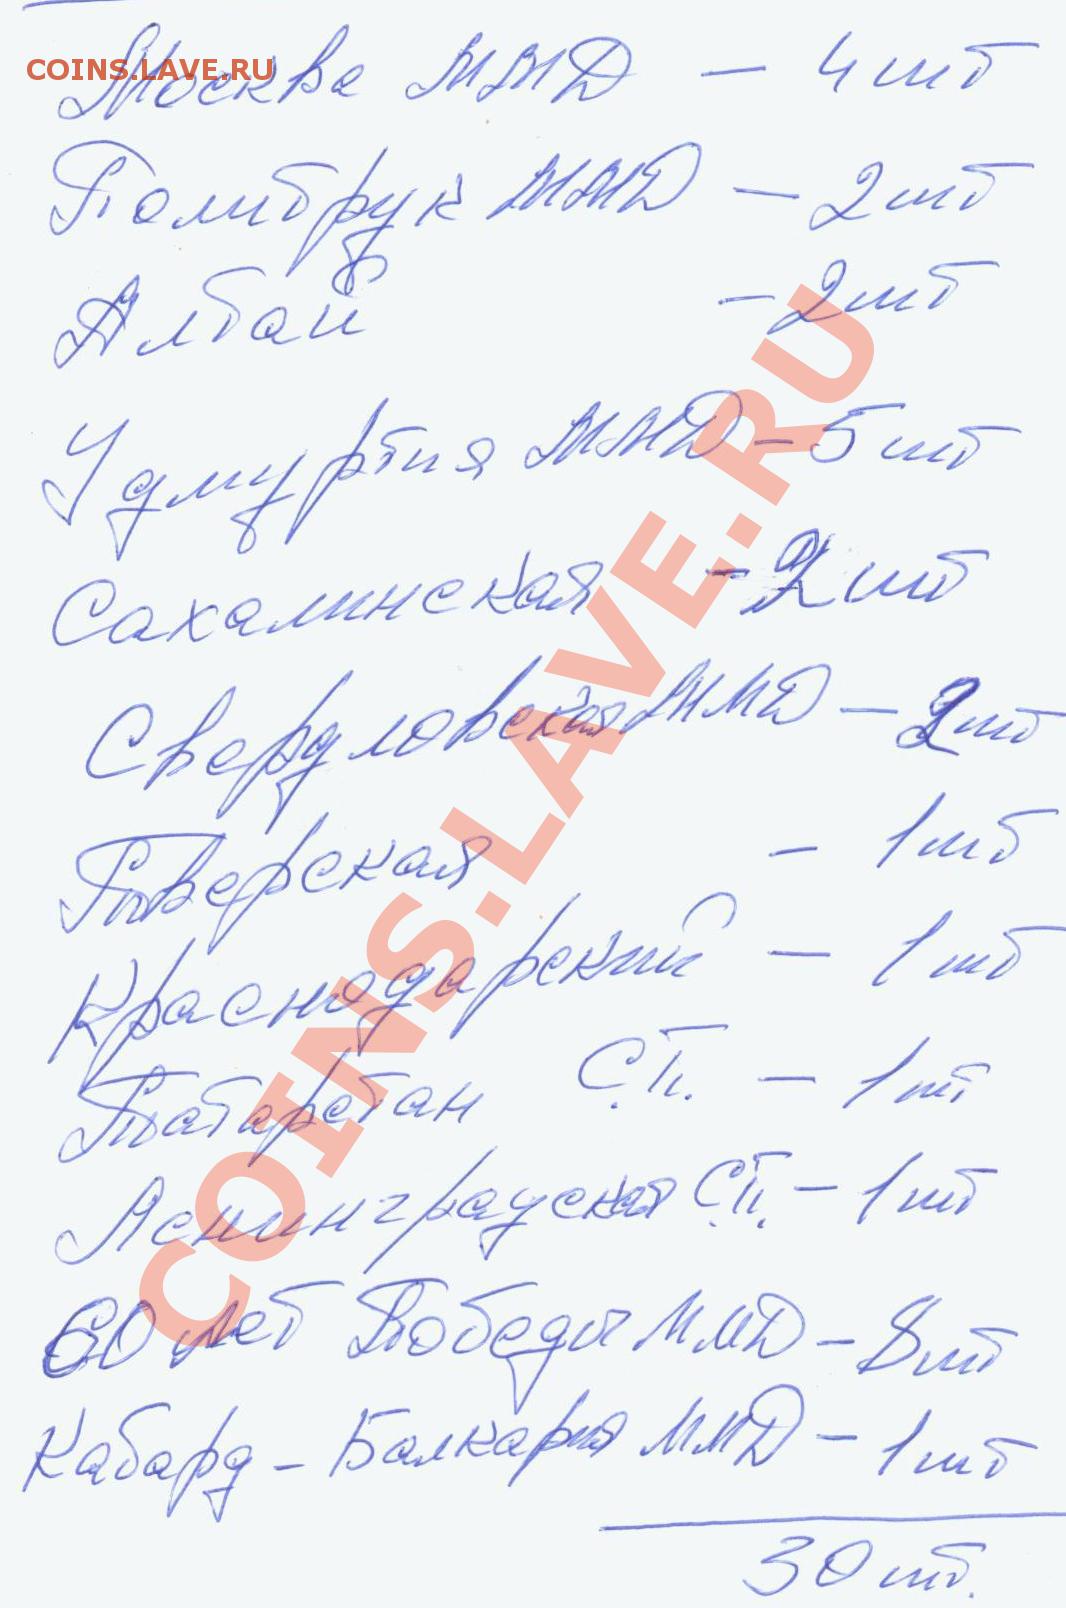 COINS.LAVE.RU
Москва ММД – 4 шт
Политрук ММД – 2 шт
Алтай – 2 шт
Удмуртия ММД – 5 шт
Сахалинская – 2 шт
Свердловская ММД – 2 шт
Тверская – 1 шт
Краснодарский – 1 шт
Татарстан С.П. – 1 шт
Ленинградская С.П. – 1 шт
60 лет Победы ММД – 8 шт
Кабард – Балкария ММД – 1 шт
30 шт.
COINS.LAVE.RU